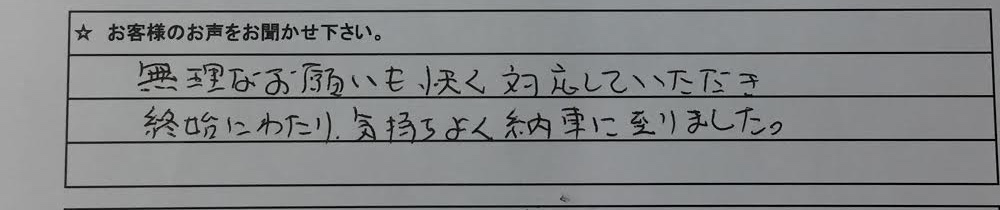 ☆ お客様のお声をお聞かせ下さい。
無理なお願いも快く対応していただき
終始にわたり、気持ちよく納車に至りました。